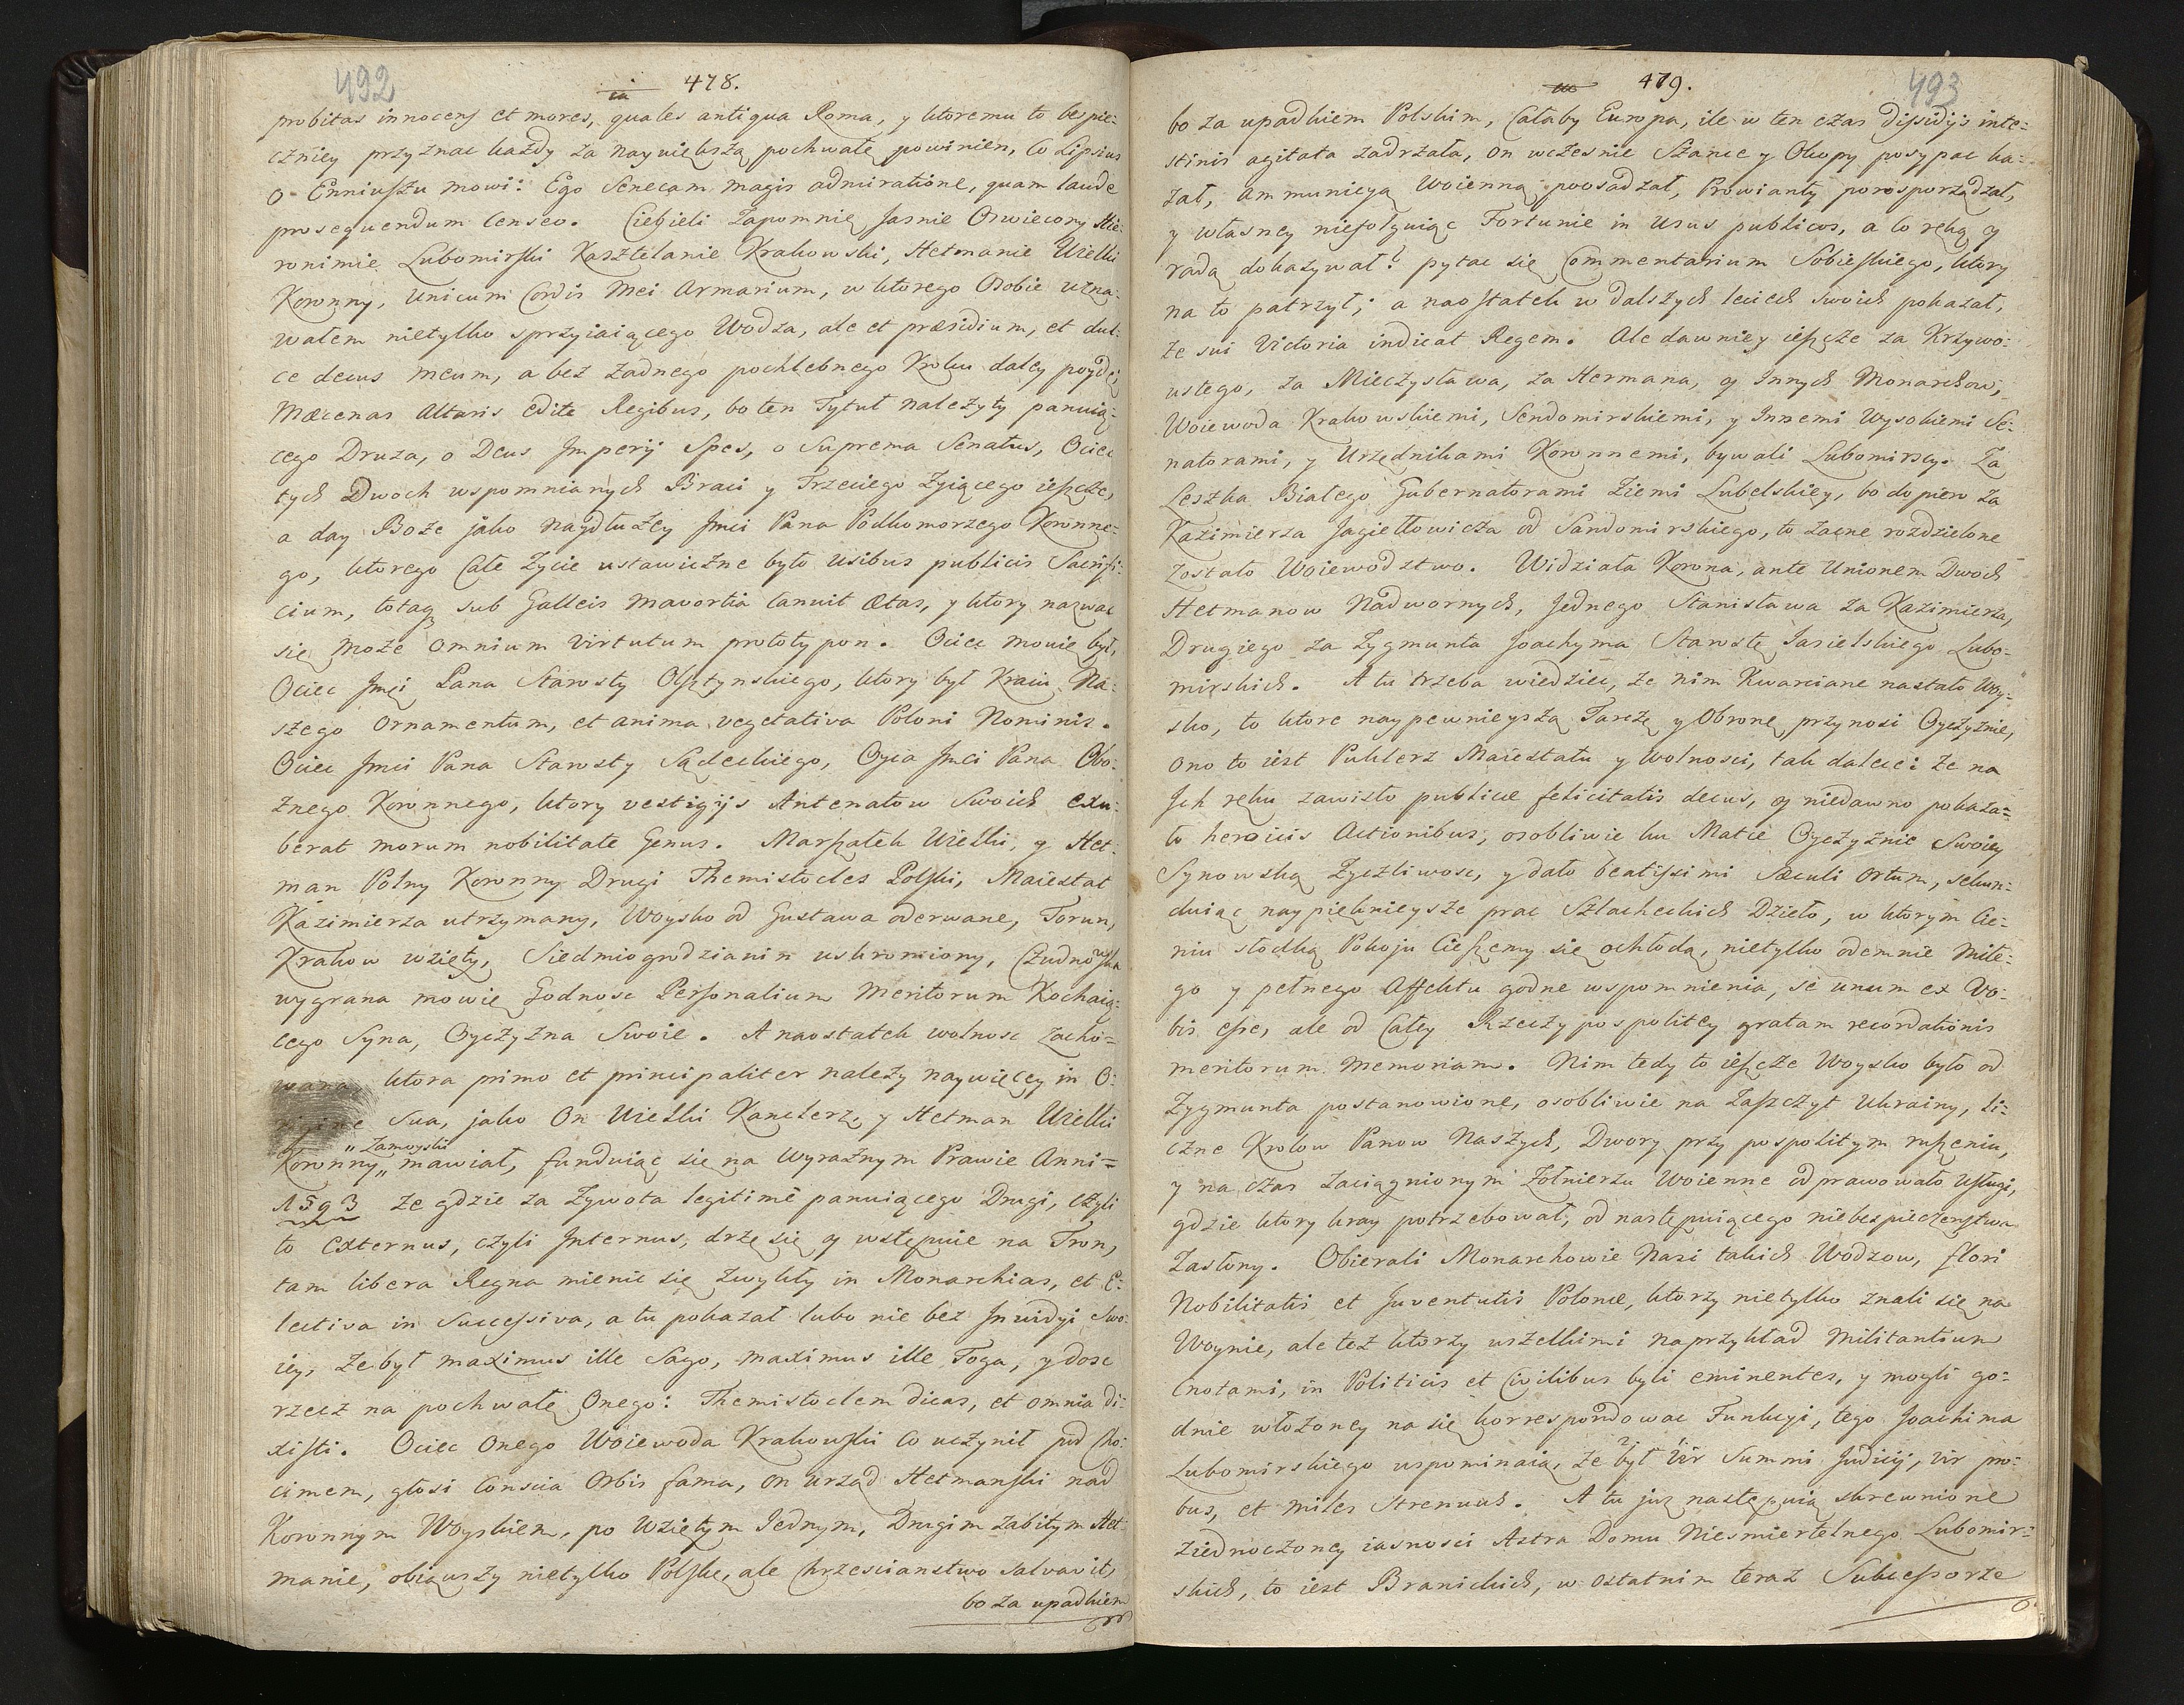 492
478.
probitas innocens et mores, quales antiqua Roma, y ktoremu to bespie:
czniey przyznac każdy za naywiększą pochwałę powinien, co Lipsius
o Enniuszu mowi: Ego Senecam magis admiratione, quam laude
prosequendum censeo. Ciebieli zapomnię Jasnie Oswiecony Hie:
ronimie Lubomirski Kasztelanie Krakowski, Hetmanie Wielki
Koronny, Unicum Cordis Mei Armarium, w ktorego Osobie uzna:
wałem nietylko sprzyiaiącego Wodza, ale et præsidium, et dul:
ce decus meum, a bez żadnego pochlebnego Kroku daley poydę,
Mæcenas Altaris edite Regibus, bo ten Tytuł należyty panuią:
cego Druza, o Deus Imperij Spes, o Suprema Senatus, Ociec
tych Dwoch wspomnianych Braci y Trzeciego Zyiącego ieszcze,
a day Boże jako naydłużey Jmci Pana Podkomorzego Koronne:
go, ktorego Całe Zycie ustawiczne było usibus publicis Sacrifi:
cium, totaq sub Galleis mavortia canuit Ætas, y ktory nazwac
się może omnium Virtutum prototypon. Ociec mowię był,
Ociec Jmci Pana Starosty Olsztynskiego, ktory był Kraiu Na:
szego ornamentum, et anima vegetativa Poloni Nominis.
Ociec Jmci Pana Starosty Sądeckiego, Oyca Jmci Pana Obo:
znego Koronnego, ktory vestigijs Antenatow Swoich exu:
berat morum nobilitate Genus. Marszałek Wielki, y Het:
man Polny Koronny Drugi Themistocles Polski, Maiestat
Kazimierza utrzymany, Woysko od Gustawa oderwane, Torun,
Krakow wzięty, Siedmiogrodzianin uskromiony, Czudnowska
wygrana mowię Godnosc Personalium Meritorum Kochaią:
cego Syna, Oyczyzna Swoie. A naostatek wolnosc zacho=
wana ktora primo et principaliter należy naywięcey in O:
rigine Sua, jako On Wielki Kanclerz, y Hetman Wielki
"Zamoyski
Koronny" mawiał, funduiąc się na wyraznym Prawie Anni=
1593 że gdzie za Zywota legitimè panuiącego Drugi, czyli
to Externus, czyli Internus, drze się y wstępuie na Tron,
tam libera Regna mienic się zwykły in Monarchias, et E:
lectiva in Successiva, a tu pokazał lubo nie bez Inwidyi Swo:
iey, że był maximus ille Sago, maximus ille Toga, y dosc
rzecz na pochwałę Onego: Themistoclem dicas, et omnia di:
xisti. Ociec Onego Woiewoda Krakowski co uczynił pod Cho:
cimem, głosi Conscia Orbis fama, on urząd Hetmanski nad
Koronnym Woyskiem, po Wziętym Jednym, Drugim zabitym Het:
manie, obiąwszy nietylko Polskę, ale Chrzescianstwo salvavit,
bo za upadkiem
493
479.
bo za upadkiem Polskim, Całaby Europa, ile w ten czas dissidijs inte:
stinis agitata zadrzała, on wczesnie Szance y Okopy posypac ka:
zał, ammunicyą Woienną poosadzał, Prowianty porosporządzał,
y własney niefolguiąc Fortunie in Usus publicos, a co ręką y
radą dokazywał? pytac się Commentarium Sobieskiego, ktory
na to patrzył; a naostatek w dalszych leciech Swoich pokazał,
że sui Victoria indicat Regem. Ale dawniey ieszcze za Krzywo:
ustego, za Mieczysława, za Hermana, y Innych Monarchow,
Woiewoda Krakowskiemi, Sendomirskiemi, y Innemi Wysokiemi Se:
natorami, y Urzędnikami Koronnemi, bywali Lubomirscy. Za
Leszka Białego Gubernatorami Ziemi Lubelskiey, bo dopiero za
Kazimierza Jagiełłowicza od Sandomirskiego, to zacne rozdzielone
zostało Woiewodztwo. Widziała Korona, ante Unionem Dwoch
Hetmanow Nadwornych, Jednego Stanisława za Kazimierza,
Drugiego za Zygmunta Joachyma Starostę Jasielskiego Lubo:
mirskich. A tu trzeba wiedziec, że nim Kwarciane nastało Woy:
sko, to ktore naypewnieyszą Tarczę y Obronę przynosi Oyczyznie,
ono to iest Puklerz Maiestatu y Wolnosci, tak dalece: że na
Jch ręku zawisło publicæ felicitatis decus, y niedawno pokaza=
ło heroicis Actionibus, osobliwie ku Matce Oyczyznie Swoiey
Synowską Zyczliwosc, y dało beatissimi Sæculi ortum, sekun:
duiąc naypięknieysze prac Szlacheckich Dzieło, w ktorym Cie:
niu słodką Pokoju Cieszemy się ochłodą, nietylko odemnie miłe:
go y pełnego Affektu godne wspomnienia, se unum ex Vo:
bis esse, ale od Całey Rzeczypospolitey gratam recordationis
meritorum Memoriam. Nim tedy to ieszcze Woysko było od
Zygmunta postanowione, osobliwie na Zaszczyt Ukrainy, li:
czne Krolow Panow Naszych, Dwory przy pospolitym ruszeniu,
y na czas zaciągnionym Zołnierzu Woienne odprawowało Usługi,
gdzie ktory kray potrzebował, od następuiącego niebezpieczenstwa
Zasłony. Obierali Monarchowie Nasi takich Wodzow, flori
Nobilitatis et Juventutis Polonæ, ktorzy nietylko znali się na
Woynie, ale też ktorzy wszelkimi naprzykład Militantium
Cnotami, in Politicis et Civilibus byli eminentes, y mogli go:
dnie włożoney na się korrespondowac Funkcyi, tego Joachima
Lubomirskiego wspominaią, że był Vir Summi Judicij, vir pro:
bus, et miles Strenuus. A tu już następuią skrewnione
ziednoczoney iasnosci Astra Domu Niesmiertelnego Lubomir:
skich, to iest Branickich, w ostatnim teraz Subcessorze